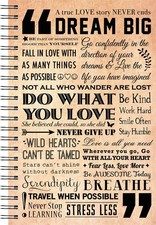 A true LOVE story NEVER ends
DREAM BIG
BE PART OF SOMETHING
BIGGER THAN YOURSELF
FALL IN LOVE WITH
AS MANY THINGS
AS POSSIBLE
Go confidently in the
direction of your
dreams & Live the
life you have imagined
NOT ALL WHO WANDER ARE LOST
DO WHAT
YOU LOVE
Work Hard
BE KIND
Smile Often
Stay Humble
She believed she could, so she did
NEVER GIVE UP
Love is all you need
WILD HEARTS
CAN'T BE TAMED
Wherever you go,
GO WITH
ALL YOUR HEART
Stars can't shine
without darkness
Fear Less, Love More
Be AWESOME Today
Serendipity
BREATHE
TRAVEL WHEN POSSIBLE
Never Stop
LEARNING
STRESS LESS